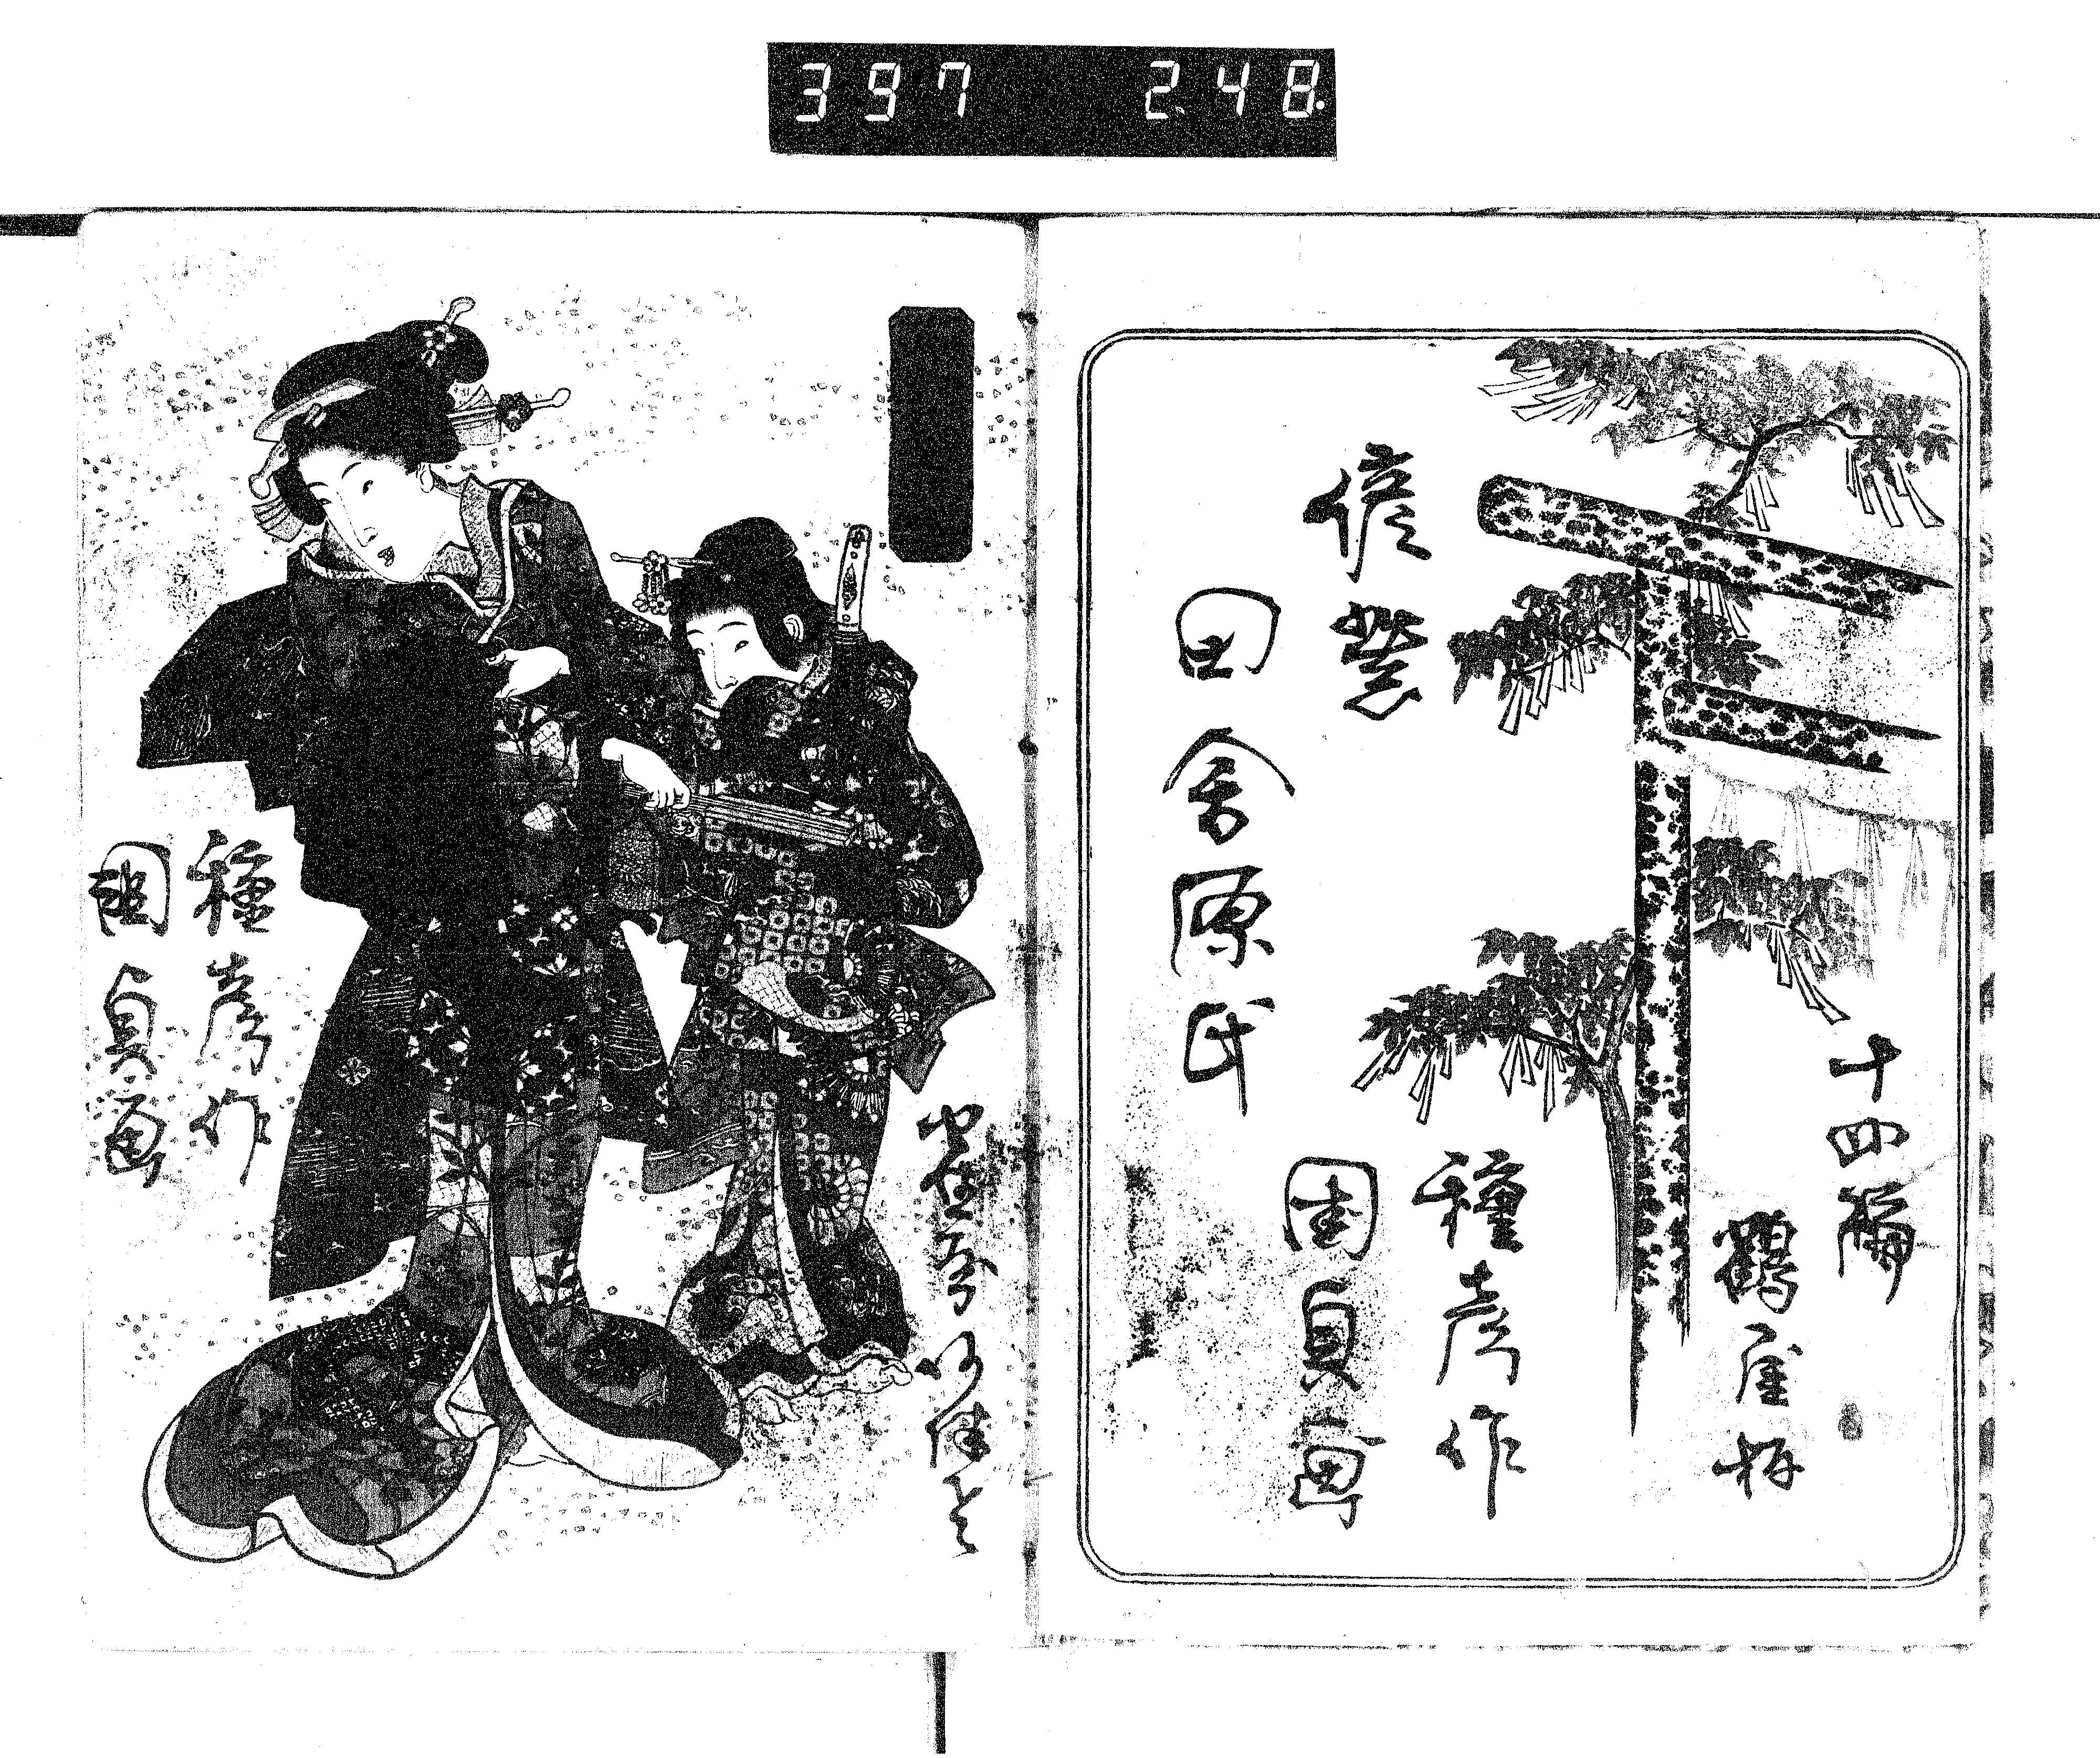 397 248.
十四編
鶴屋板
偐紫
田舎源氏
種彦作
国貞画
種彦作
国貞画